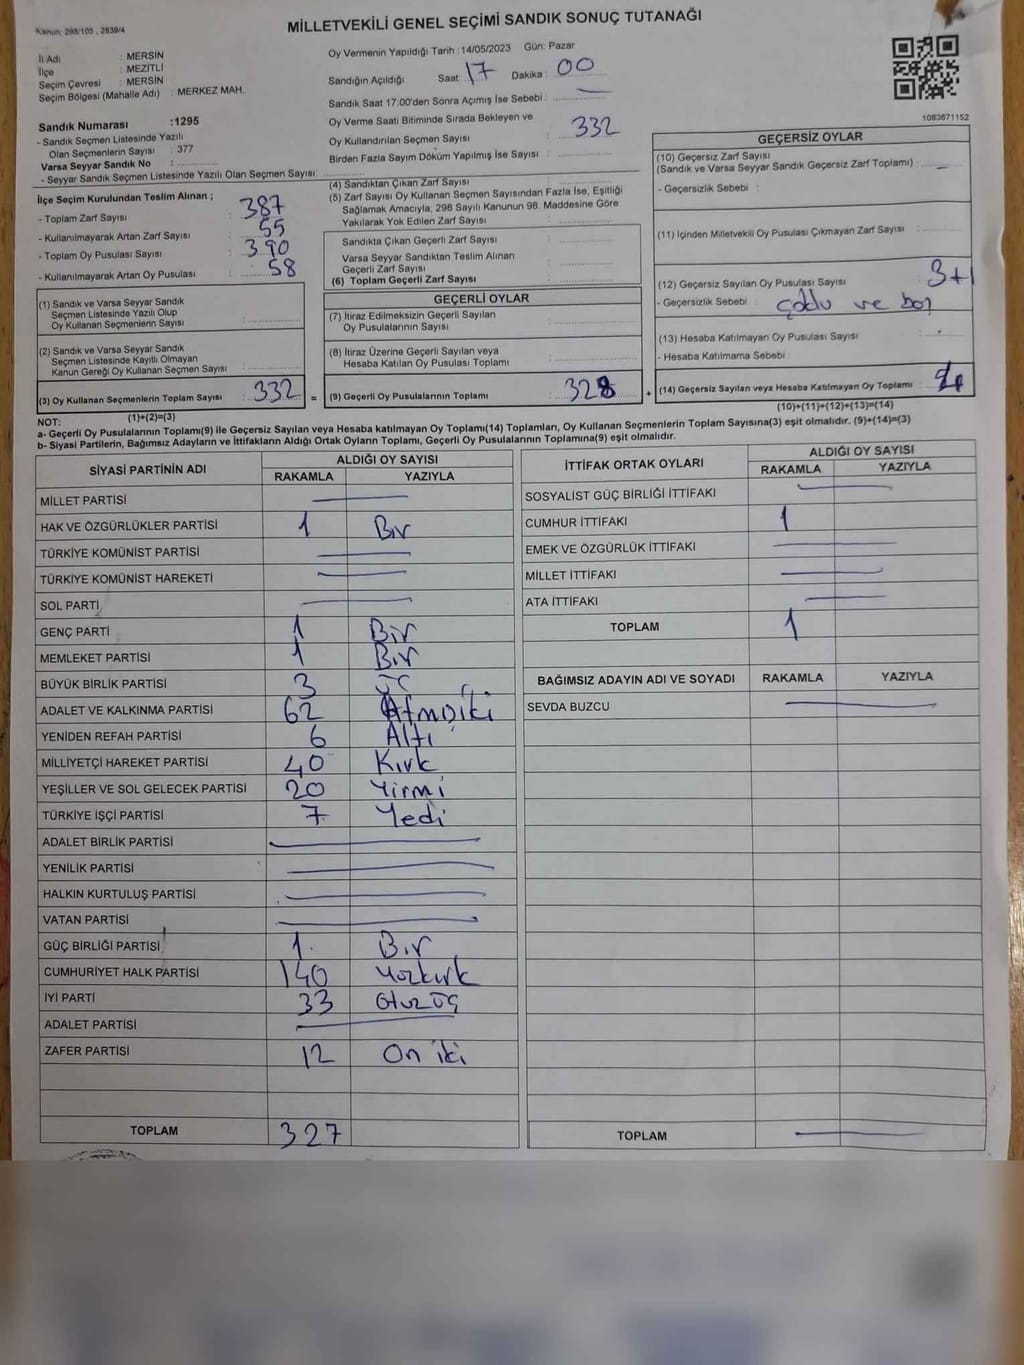 Kanun: 298/105 , 2839/4
MİLLETVEKİLİ GENEL SEÇİMİ SANDIK SONUÇ TUTANAĞI
İl Adı : MERSİN
İlçe : MEZİTLİ
Seçim Çevresi : MERSİN
Seçim Bölgesi (Mahalle Adı) : MERKEZ MAH.
Oy Vermenin Yapıldığı Tarih : 14/05/2023 Gün: Pazar
Sandığın Açıldığı Saat : 17 Dakika : 00
Sandık Saat 17.00'den Sonra Açımış İse Sebebi : —
Oy Verme Saati Bitiminde Sırada Bekleyen ve
Oy Kullandırılan Seçmen Sayısı : 332
Birden Fazla Sayım Döküm Yapılmış İse Sayısı :
1083671152
Sandık Numarası :1295
- Sandık Seçmen Listesinde Yazılı
Olan Seçmenlerin Sayısı : 377
Varsa Seyyar Sandık No :
- Seyyar Sandık Seçmen Listesinde Yazılı Olan Seçmen Sayısı :
İlçe Seçim Kurulundan Teslim Alınan ;
- Toplam Zarf Sayısı : 387
- Kullanılmayarak Artan Zarf Sayısı : 55
- Toplam Oy Pusulası Sayısı : 390
- Kullanılmayarak Artan Oy Pusulası : 58
(1) Sandık ve Varsa Seyyar Sandık
Seçmen Listesinde Yazılı Olup
Oy Kullanan Seçmenlerin Sayısı :
(2) Sandık ve Varsa Seyyar Sandık
Seçmen Listesinde Kayıtlı Olmayan
Kanun Gereği Oy Kullanan Seçmen Sayısı :
(3) Oy Kullanan Seçmenlerin Toplam Sayısı : 332
(1)+(2)=(3)
(4) Sandıktan Çıkan Zarf Sayısı :
(5) Zarf Sayısı Oy Kullanan Seçmen Sayısından Fazla İse, Eşitliği
Sağlamak Amacıyla, 298 Sayılı Kanunun 98. Maddesine Göre
Yakılarak Yok Edilen Zarf Sayısı :
Sandıkta Çıkan Geçerli Zarf Sayısı :
Varsa Seyyar Sandıktan Teslim Alınan
Geçerli Zarf Sayısı :
(6) Toplam Geçerli Zarf Sayısı :
GEÇERLİ OYLAR
(7) İtiraz Edilmeksizin Geçerli Sayılan
Oy Pusulalarının Sayısı :
(8) İtiraz Üzerine Geçerli Sayılan veya
Hesaba Katılan Oy Pusulası Toplamı :
= (9) Geçerli Oy Pusulalarının Toplamı : 328
GEÇERSİZ OYLAR
(10) Geçersiz Zarf Sayısı
(Sandık ve Varsa Seyyar Sandık Geçersiz Zarf Toplamı) : —
- Geçersizlik Sebebi :
(11) İçinden Milletvekili Oy Pusulası Çıkmayan Zarf Sayısı :
(12) Geçersiz Sayılan Oy Pusulası Sayısı : 3+1
- Geçersizlik Sebebi : çoklu ve boş
(13) Hesaba Katılmayan Oy Pusulası Sayısı :
- Hesaba Katılmama Sebebi :
+ (14) Geçersiz Sayılan veya Hesaba Katılmayan Oy Toplamı : 4
(10)+(11)+(12)+(13)=(14)
NOT:
a- Geçerli Oy Pusulalarının Toplamı(9) ile Geçersiz Sayılan veya Hesaba katılmayan Oy Toplamı(14) Toplamları, Oy Kullanan Seçmenlerin Toplam Sayısına(3) eşit olmalıdır. (9)+(14)=(3)
b- Siyasi Partilerin, Bağımsız Adayların ve İttifakların Aldığı Ortak Oyların Toplamı, Geçerli Oy Pusulalarının Toplamına(9) eşit olmalıdır.
SİYASİ PARTİNİN ADI ALDIĞI OY SAYISI
RAKAMLA YAZIYLA
MİLLET PARTİSİ —
HAK VE ÖZGÜRLÜKLER PARTİSİ 1 Bir
TÜRKİYE KOMÜNİST PARTİSİ —
TÜRKİYE KOMÜNİST HAREKETİ —
SOL PARTİ —
GENÇ PARTİ 1 Bir
MEMLEKET PARTİSİ 1 Bir
BÜYÜK BİRLİK PARTİSİ 3 Üç
ADALET VE KALKINMA PARTİSİ 62 Atmışiki
YENİDEN REFAH PARTİSİ 6 Altı
MİLLİYETÇİ HAREKET PARTİSİ 40 Kırk
YEŞİLLER VE SOL GELECEK PARTİSİ 20 Yirmi
TÜRKİYE İŞÇİ PARTİSİ 7 Yedi
ADALET BİRLİK PARTİSİ —
YENİLİK PARTİSİ —
HALKIN KURTULUŞ PARTİSİ —
VATAN PARTİSİ —
GÜÇ BİRLİĞİ PARTİSİ 1. Bir
CUMHURİYET HALK PARTİSİ 140 Yüzkırk
İYİ PARTİ 33 Otuzüç
ADALET PARTİSİ —
ZAFER PARTİSİ 12 On iki
TOPLAM 327
İTTİFAK ORTAK OYLARI ALDIĞI OY SAYISI
RAKAMLA YAZIYLA
SOSYALİST GÜÇ BİRLİĞİ İTTİFAKI —
CUMHUR İTTİFAKI 1
EMEK VE ÖZGÜRLÜK İTTİFAKI —
MİLLET İTTİFAKI —
ATA İTTİFAKI —
TOPLAM 1
BAĞIMSIZ ADAYIN ADI VE SOYADI RAKAMLA YAZIYLA
SEVDA BUZCU —
TOPLAM —